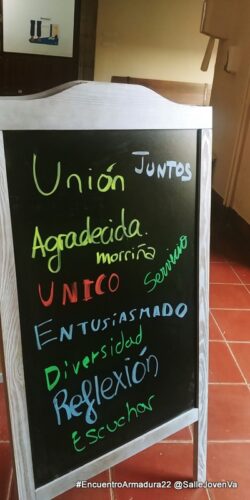 Unión
JUNTOS
Agradecida.
morriña
UNICO
Servicio
ENTUSIASMADO
Diversidad
Reflexión
Escuchar
#EncuentroArmadura22 @SalleJovenVa